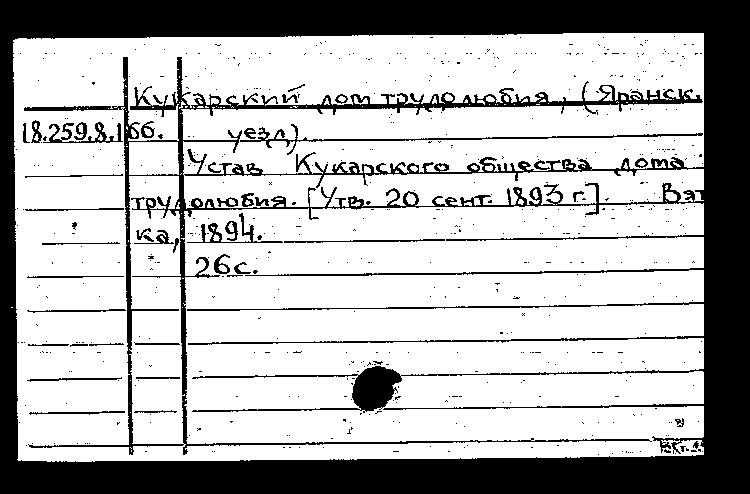 Кукарский дом трудолюбия, (Яранск.
18.259.8.166. уезд).
Устав Кукарского общества дома
трудолюбия. [Утв. 20 сент. 1893 г.]. Вят
ка, 1894.
26с.